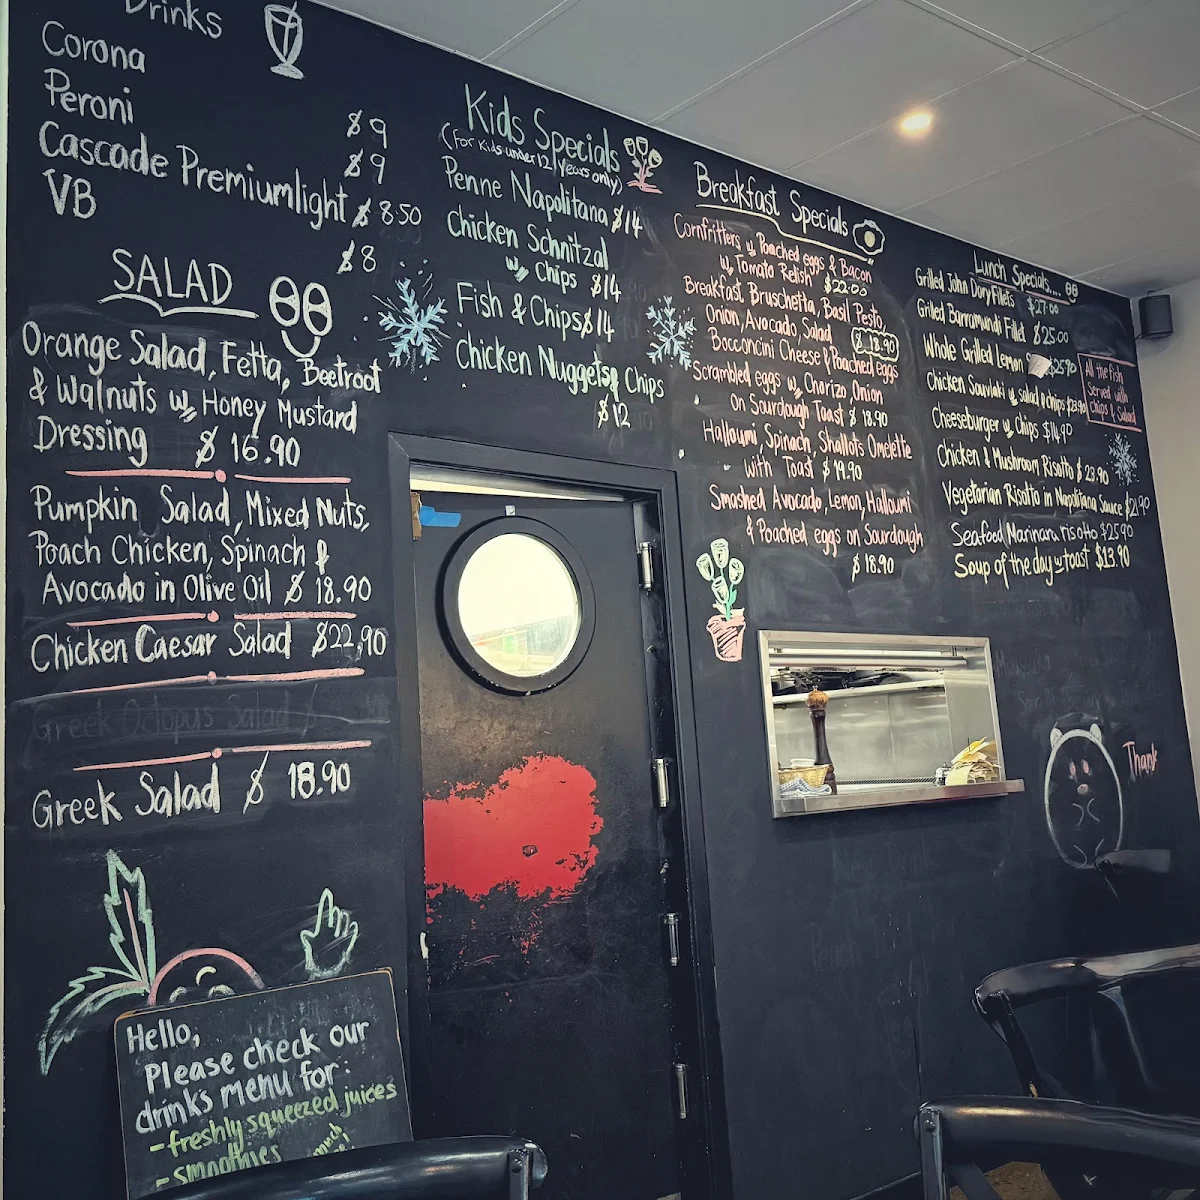 Drinks
Corona
$9
Peroni
$9
Cascade Premiumlight $8.50
VB
$8
SALAD
Orange Salad, Fetta, Beetroot
& Walnuts w Honey Mustard
Dressing $16.90
Pumpkin Salad, Mixed Nuts,
Poach Chicken, Spinach &
Avocado in Olive Oil $18.90
Chicken Caesar Salad $22.90
Greek Octopus Salad $
Greek Salad $18.90
Hello,
Please check our
drinks menu for:
-freshly squeezed juices
-smoothies
Kids Specials
(For kids under 12 years only)
Penne Napolitana $14
Chicken Schnitzal
w Chips $14
Fish & Chips $14
Chicken Nuggets & Chips
$12
Breakfast Specials
Cornfritters w Poached eggs & Bacon
w Tomato Relish $22.00
Breakfast Bruschetta, Basil Pesto,
Onion, Avocado, Salad $18.90
Bocconcini Cheese & Poached eggs
Scrambled eggs w Chorizo, Onion
on Sourdough Toast $18.90
Halloumi, Spinach, Shallots Omelette
with Toast $19.90
Smashed Avocado, Lemon, Halloumi
& Poached eggs on Sourdough
$18.90
Lunch Specials...
Grilled John Dory Fillets $27.00
Grilled Barramundi Fillet $25.00
Whole Grilled Lemon
Chicken Souvlaki w salad & chips $23.90
Cheeseburger w Chips $14.90
Chicken & Mushroom Risotto $23.90
Vegetarian Risotto in Napolitana Sauce $21.90
Seafood Marinara risotto $25.90
Soup of the day w toast $13.90
All the Fish
Served with
Chips & Salad
Thank